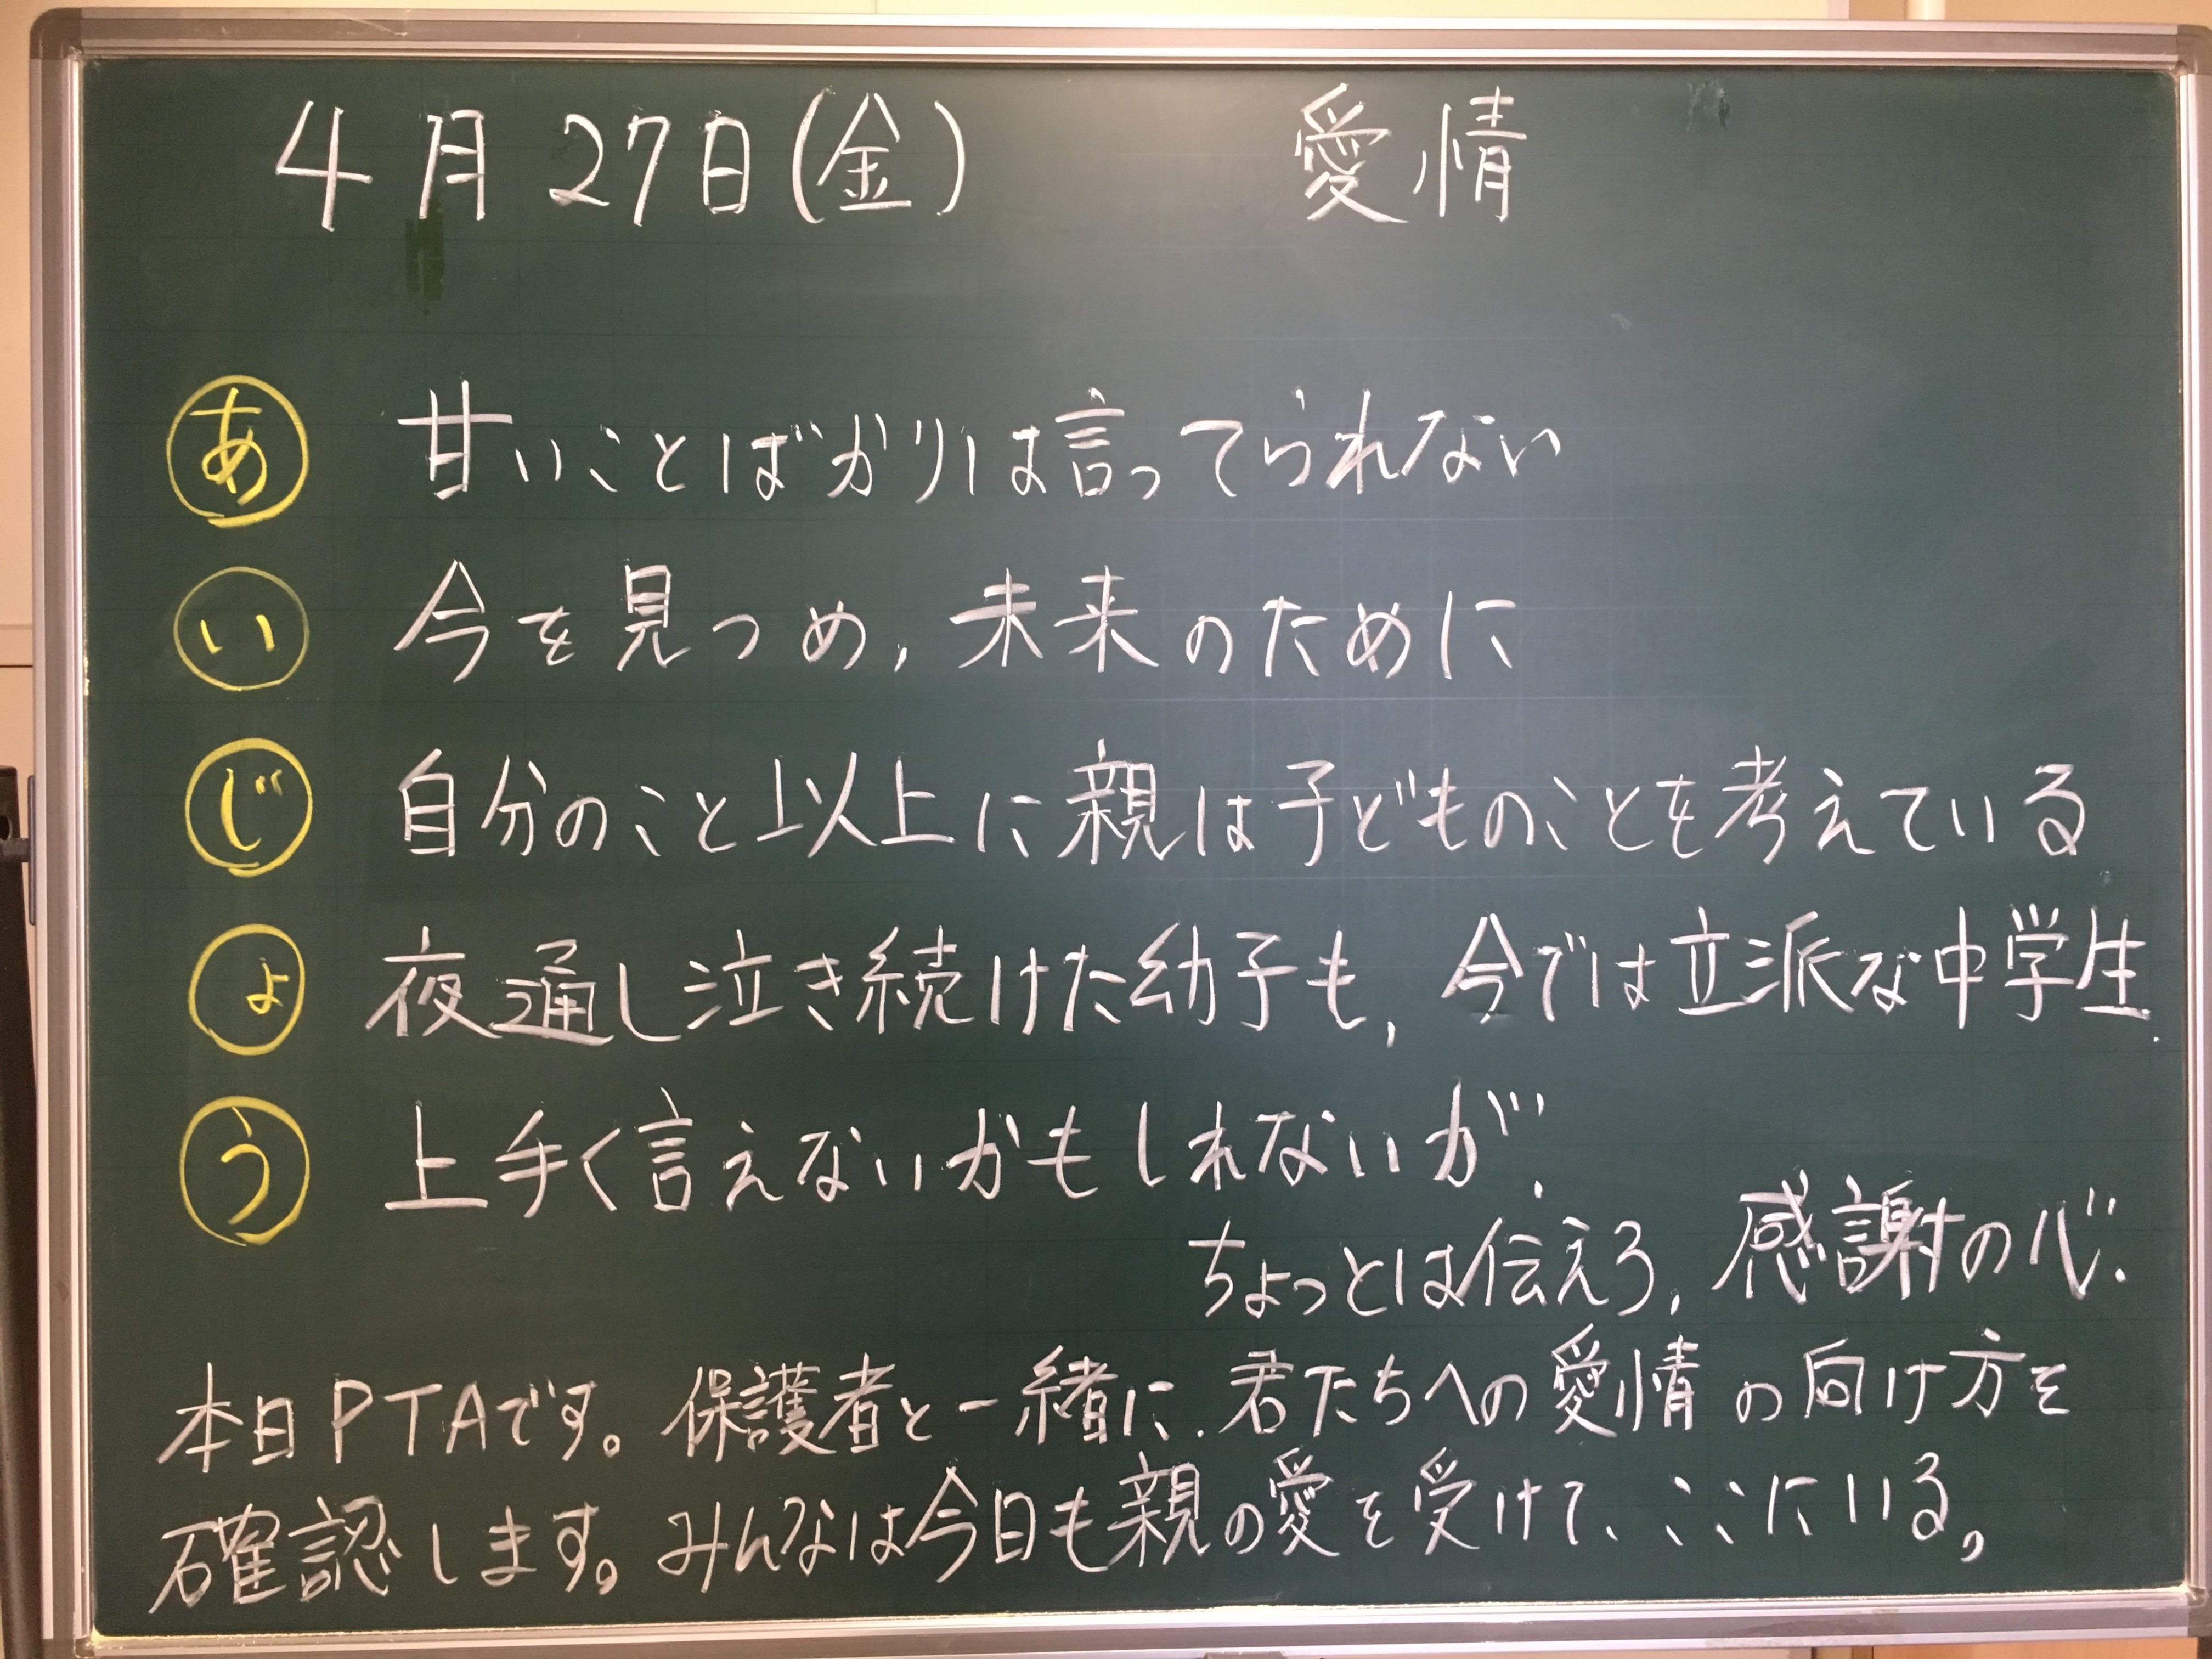 4月27日(金) 愛情
あ 甘いことばかりは言ってられない
い 今を見つめ,未来のために
じ 自分のこと以上に親は子どものことを考えている
ょ 夜通し泣き続けた幼子も,今では立派な中学生.
う 上手く言えないかもしれないが,
ちょっとは伝えろ,感謝の心.
本日PTAです。保護者と一緒に.君たちへの愛情の向け方を
確認します。みんなは今日も親の愛を受けて、ここにいる。